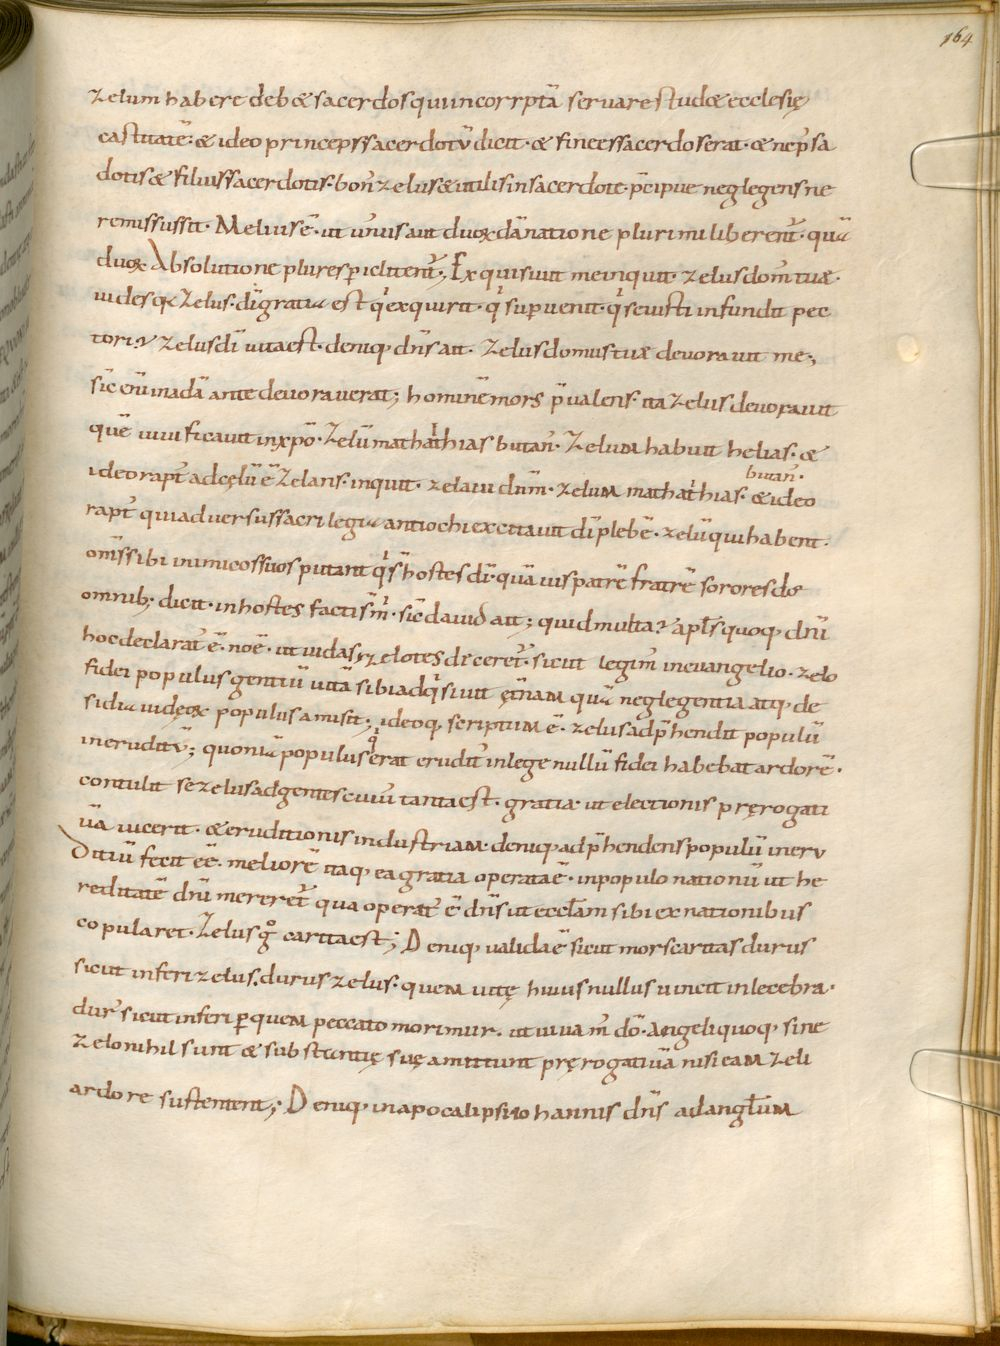 164
zelum habere debet sacerdos qui incorrptā seruare studet ecclesię
castitatē· & ideo princeps sacerdotū dicit· & finees sacerdos erat· & nep̄ sa
dotis & filius sacerdotis· bon̄ zelus & utilis in sacerdote· p̄cipue neglegens ne
remissus sit· Melius ē· ut unus aut duoꝝ dānatione plurimi liberent̄· quā
duoꝝ Absolutione plures ꝑiclitent̄; Exquisiuit me inquit· zelus dom̄ tuæ·
uides qa Zelus· dī gratia est q̄ exquirit· q̄ supuenit· q̄ se iusti infundit pec
tori? Zelus dī uita est· deniq; dn̄s ait· Zelus domus tuæ deuorauit me;
sic eni in adā ante deuorauerat; hominē mors p̄ualens· ita zelus deuorauit
quē uiuificauit in xpō· Zelū mathathias butan̄· Zelum habuit helias· &
ideo rapt̄ ad cęlū ē Zelans· inquit· zelaui dn̄m· zelum mathathias· butan̄· & ideo
rapt̄ qui aduersus sacrilegia antiochi excitauit dī plebē· zelū qui habent·
om̄s sibi inimicos suos putant q̄ s̄ hostes dī· quāuis patrē fratrē sorores de
omnib; dicit· inhostes facti s̄ m̄· sic dauid ait; quid multa? apl̄s quoq; dn̄i
hoc declarat̄ ē· noē· ut iudas zelotes diceret̄· sicut legim̄ in euangelio· zelo
fidei populus gentiū uitā sibi adq̄siuit ęt̄nam quā neglegentia atq; de
sidia iudęoꝝ populus amisit; ideoq; scriptum ē· zelus adp̄hendit populū
ineruditū; quoniā populus q̄ erat erudit̄ in lege nullū fidei habebat ardorē·
contulit se zelus ad gentes cuiu tanta est· gratia· ut electionis pręrogati
uā uicerit· & eruditionis industriam· deniq; adp̄hendens populū ineru
Ditiū fecit eē· meliorē itaq; ea gratia operata ē· in populo nationū ut he
reditatē dn̄i mereret̄ qua operat̄ ē dn̄s ut eccl̄am sibi ex nationibus
copularet· Zelus g̊ caritas est; Deniq; ualida ē sicut mors caritas durus
sicut inferi zelus· durus zelus· quem uitę huius nullus uincit inlecebra·
dur̄ sicut inferi ꝑ quem peccato morimur· ut uiuam̄ dō· Angeli quoq; sine
Zelo nihil sunt & substantię suę amittunt pręrogatiuā nisi eam zeli
ardore sustentent; Deniq; in apocalipsi iohannis dn̄s ad angl̄um